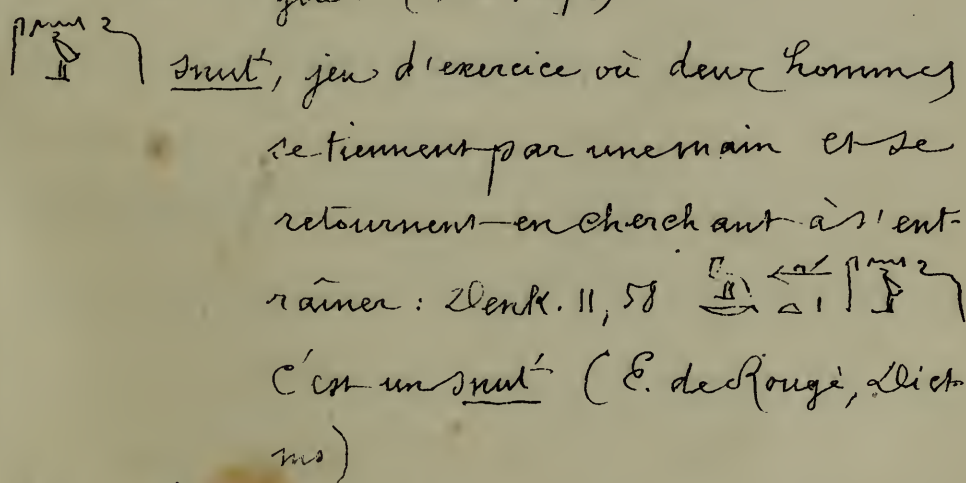 snut, jeu d'exercice où deux hommes
se tiennent par une main et se
retournent en cherchant à s'ent-
râiner : Denk. II, 58
C'est un snut (E. de Rougé, Dict
ms)